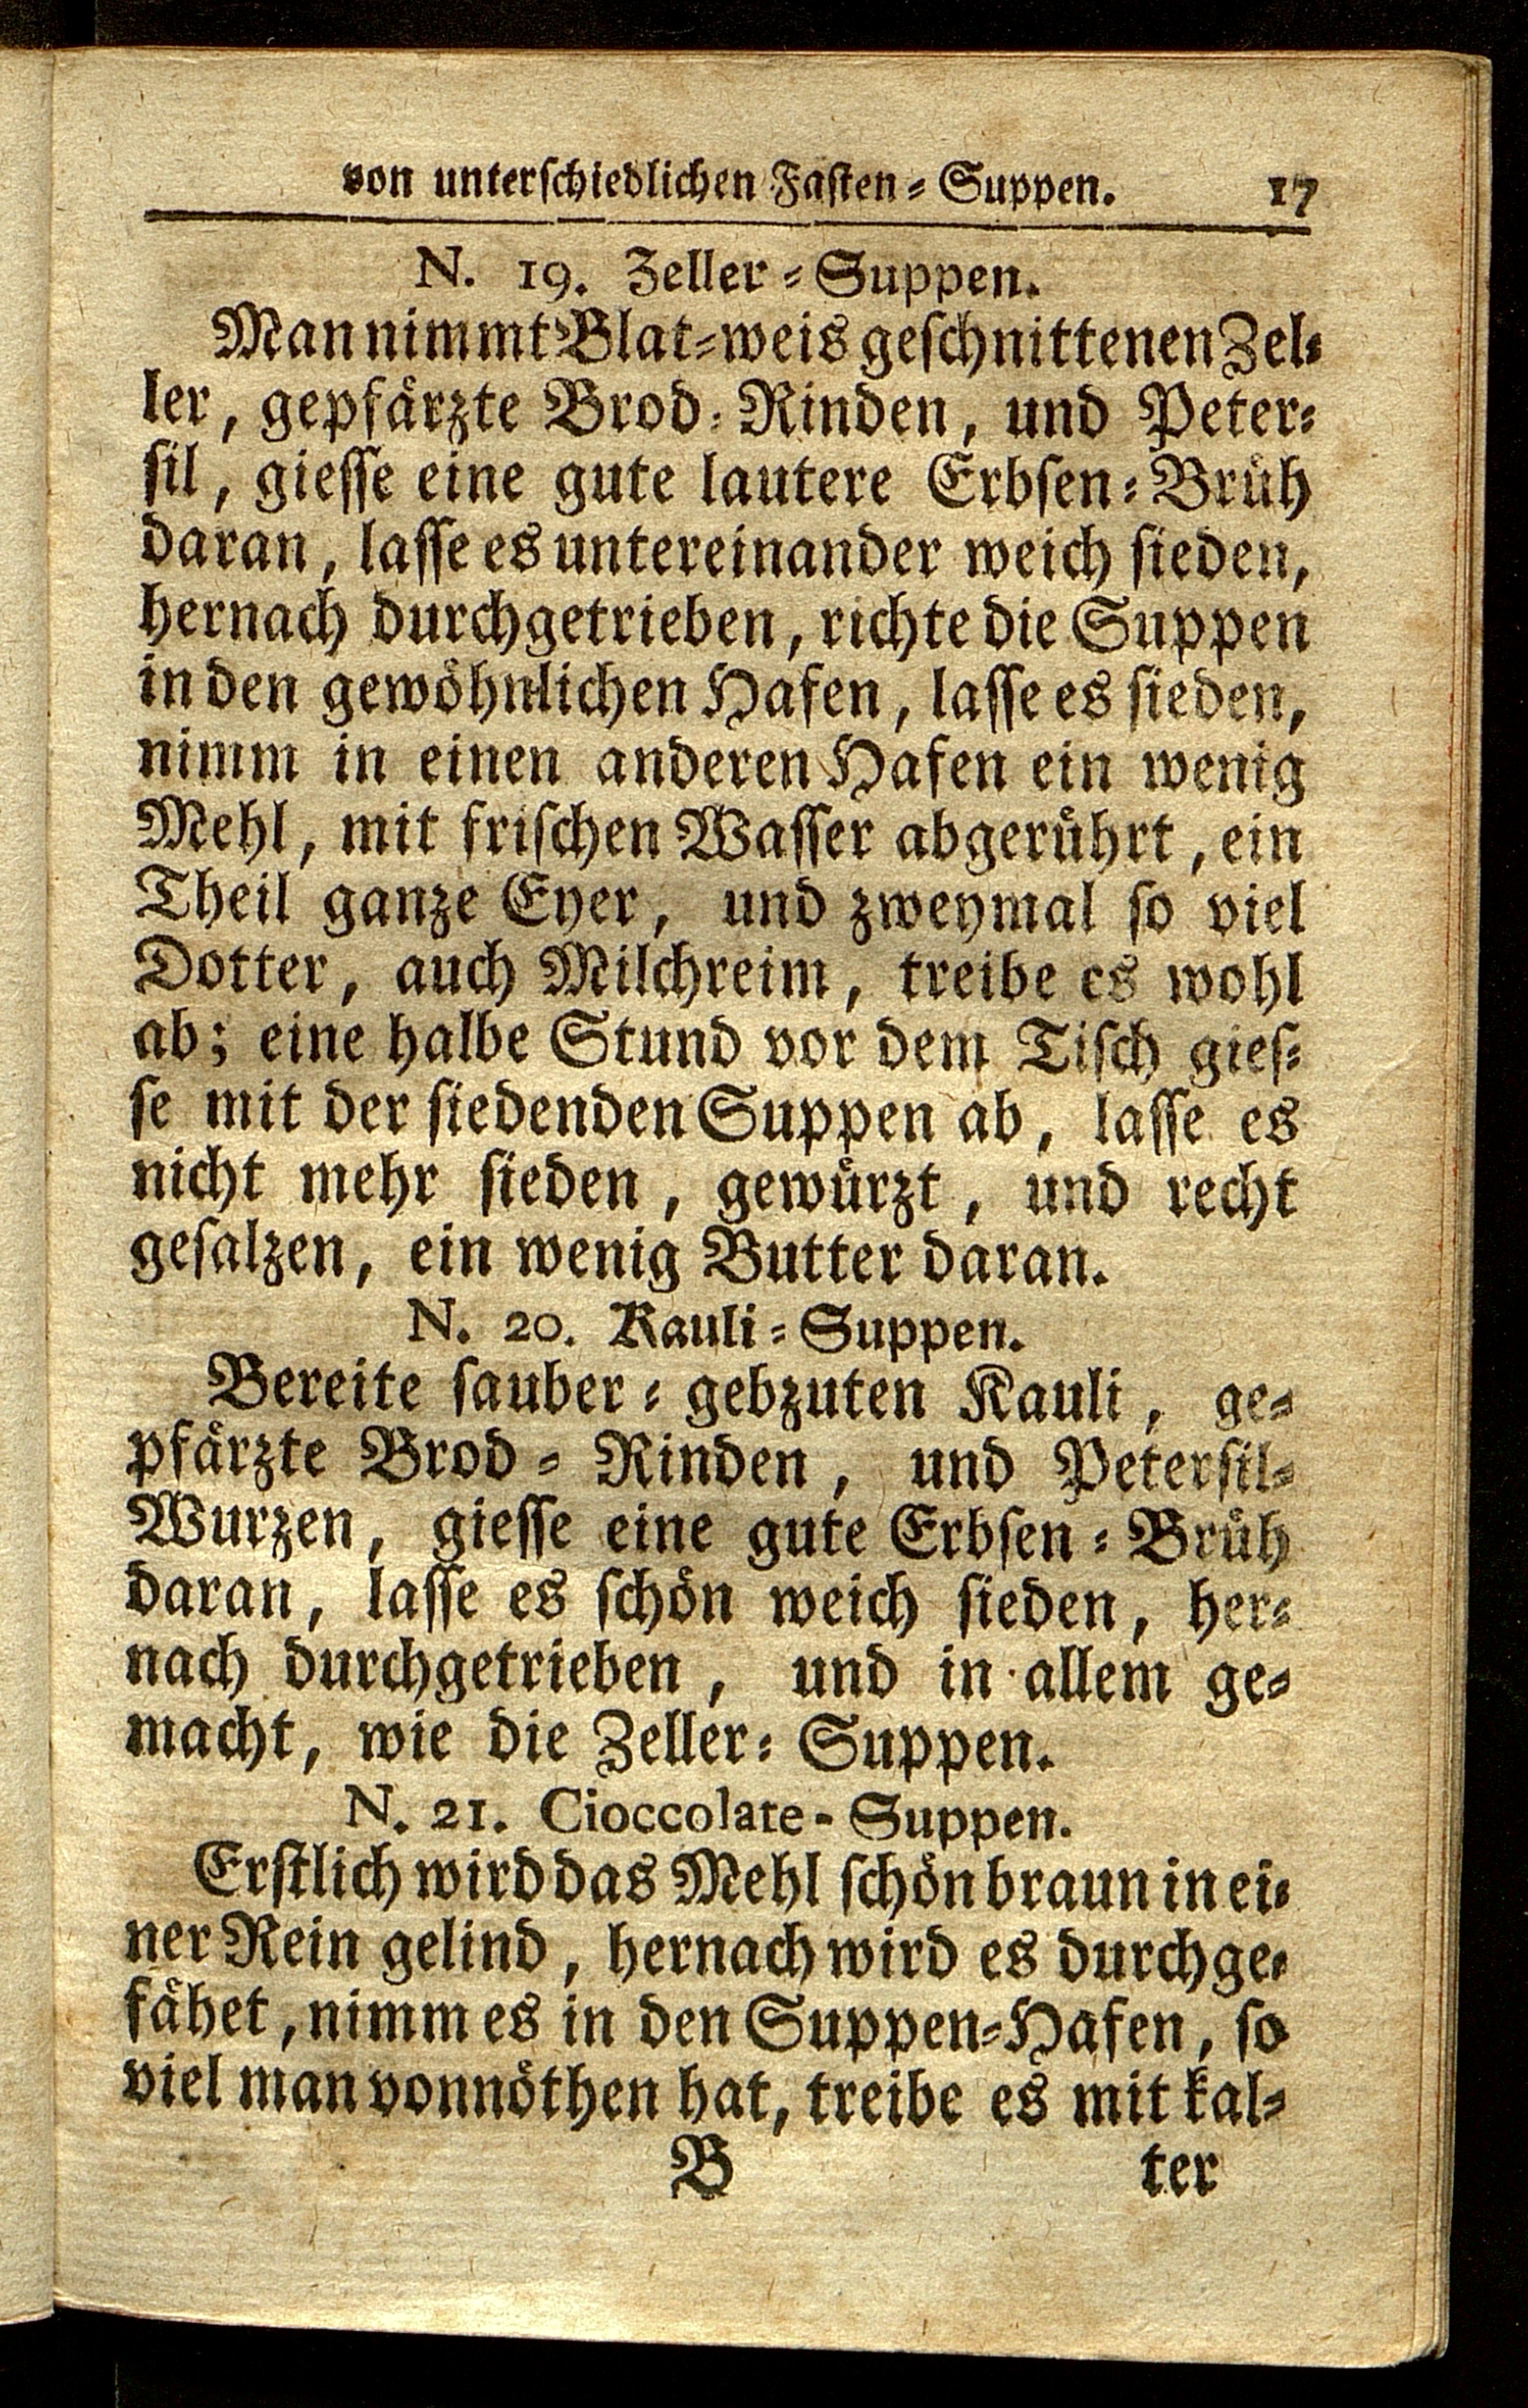 von unterschiedlichen Fasten-Suppen. 17
N. 19. Zeller-Suppen.
Man nimmt Blat-weis geschnittenen Zel-
ler, gepfärzte Brod-Rinden, und Peter-
sil, giesse eine gute lautere Erbsen-Brüh
daran, lasse es untereinander weich sieden,
hernach durchgetrieben, richte die Suppen
in den gewöhnlichen Hafen, lasse es sieden,
nimm in einen anderen Hafen ein wenig
Mehl, mit frischen Wasser abgerührt, ein
Theil ganze Eyer, und zweymal so viel
Dotter, auch Milchreim, treibe es wohl
ab; eine halbe Stund vor dem Tisch gies-
se mit der siedenden Suppen ab, lasse es
nicht mehr sieden, gewürzt, und recht
gesalzen, ein wenig Butter daran.
N. 20. Kauli-Suppen.
Bereite sauber-gebzuten Kauli, ge-
pfärzte Brod-Rinden, und Petersil-
Wurzen, giesse eine gute Erbsen-Brüh
daran, lasse es schön weich sieden, her-
nach durchgetrieben, und in allem ge-
macht, wie die Zeller-Suppen.
N. 21. Cioccolate-Suppen.
Erstlich wird das Mehl schön braun in ei-
ner Rein gelind, hernach wird es durchge-
fähet, nimm es in den Suppen-Hafen, so
viel man vonnöthen hat, treibe es mit kal-
B ter